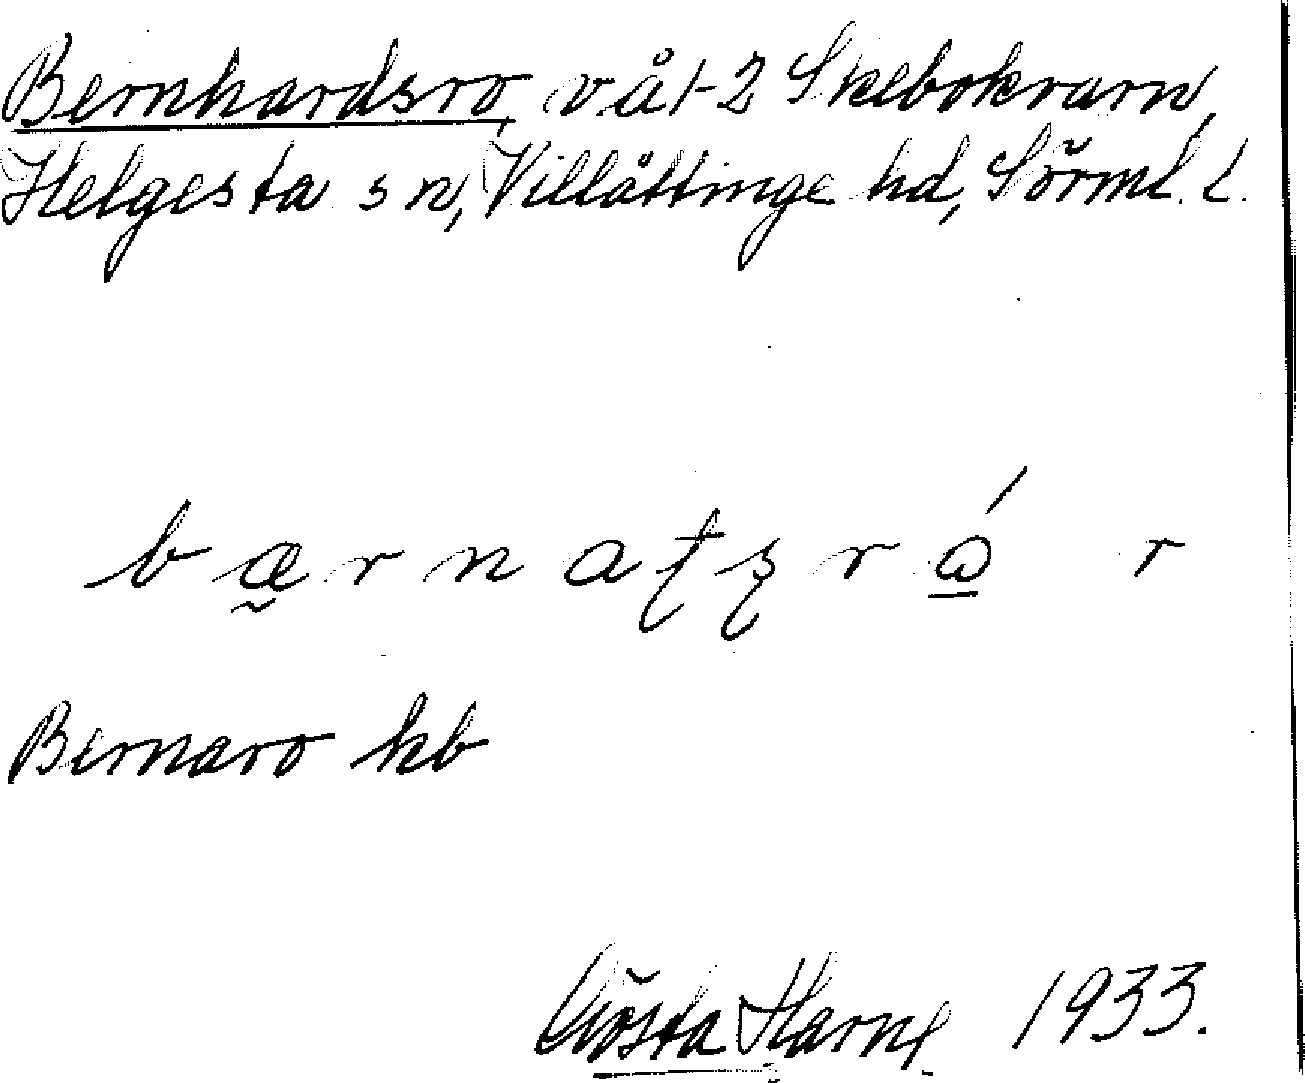 Bernhardsro, våt 2 Skebokvarn,
Helgesta sn, Villåttinge hd, Sörml. l.
bærnatsrå r
Bernaro kb
Gösta 1933.